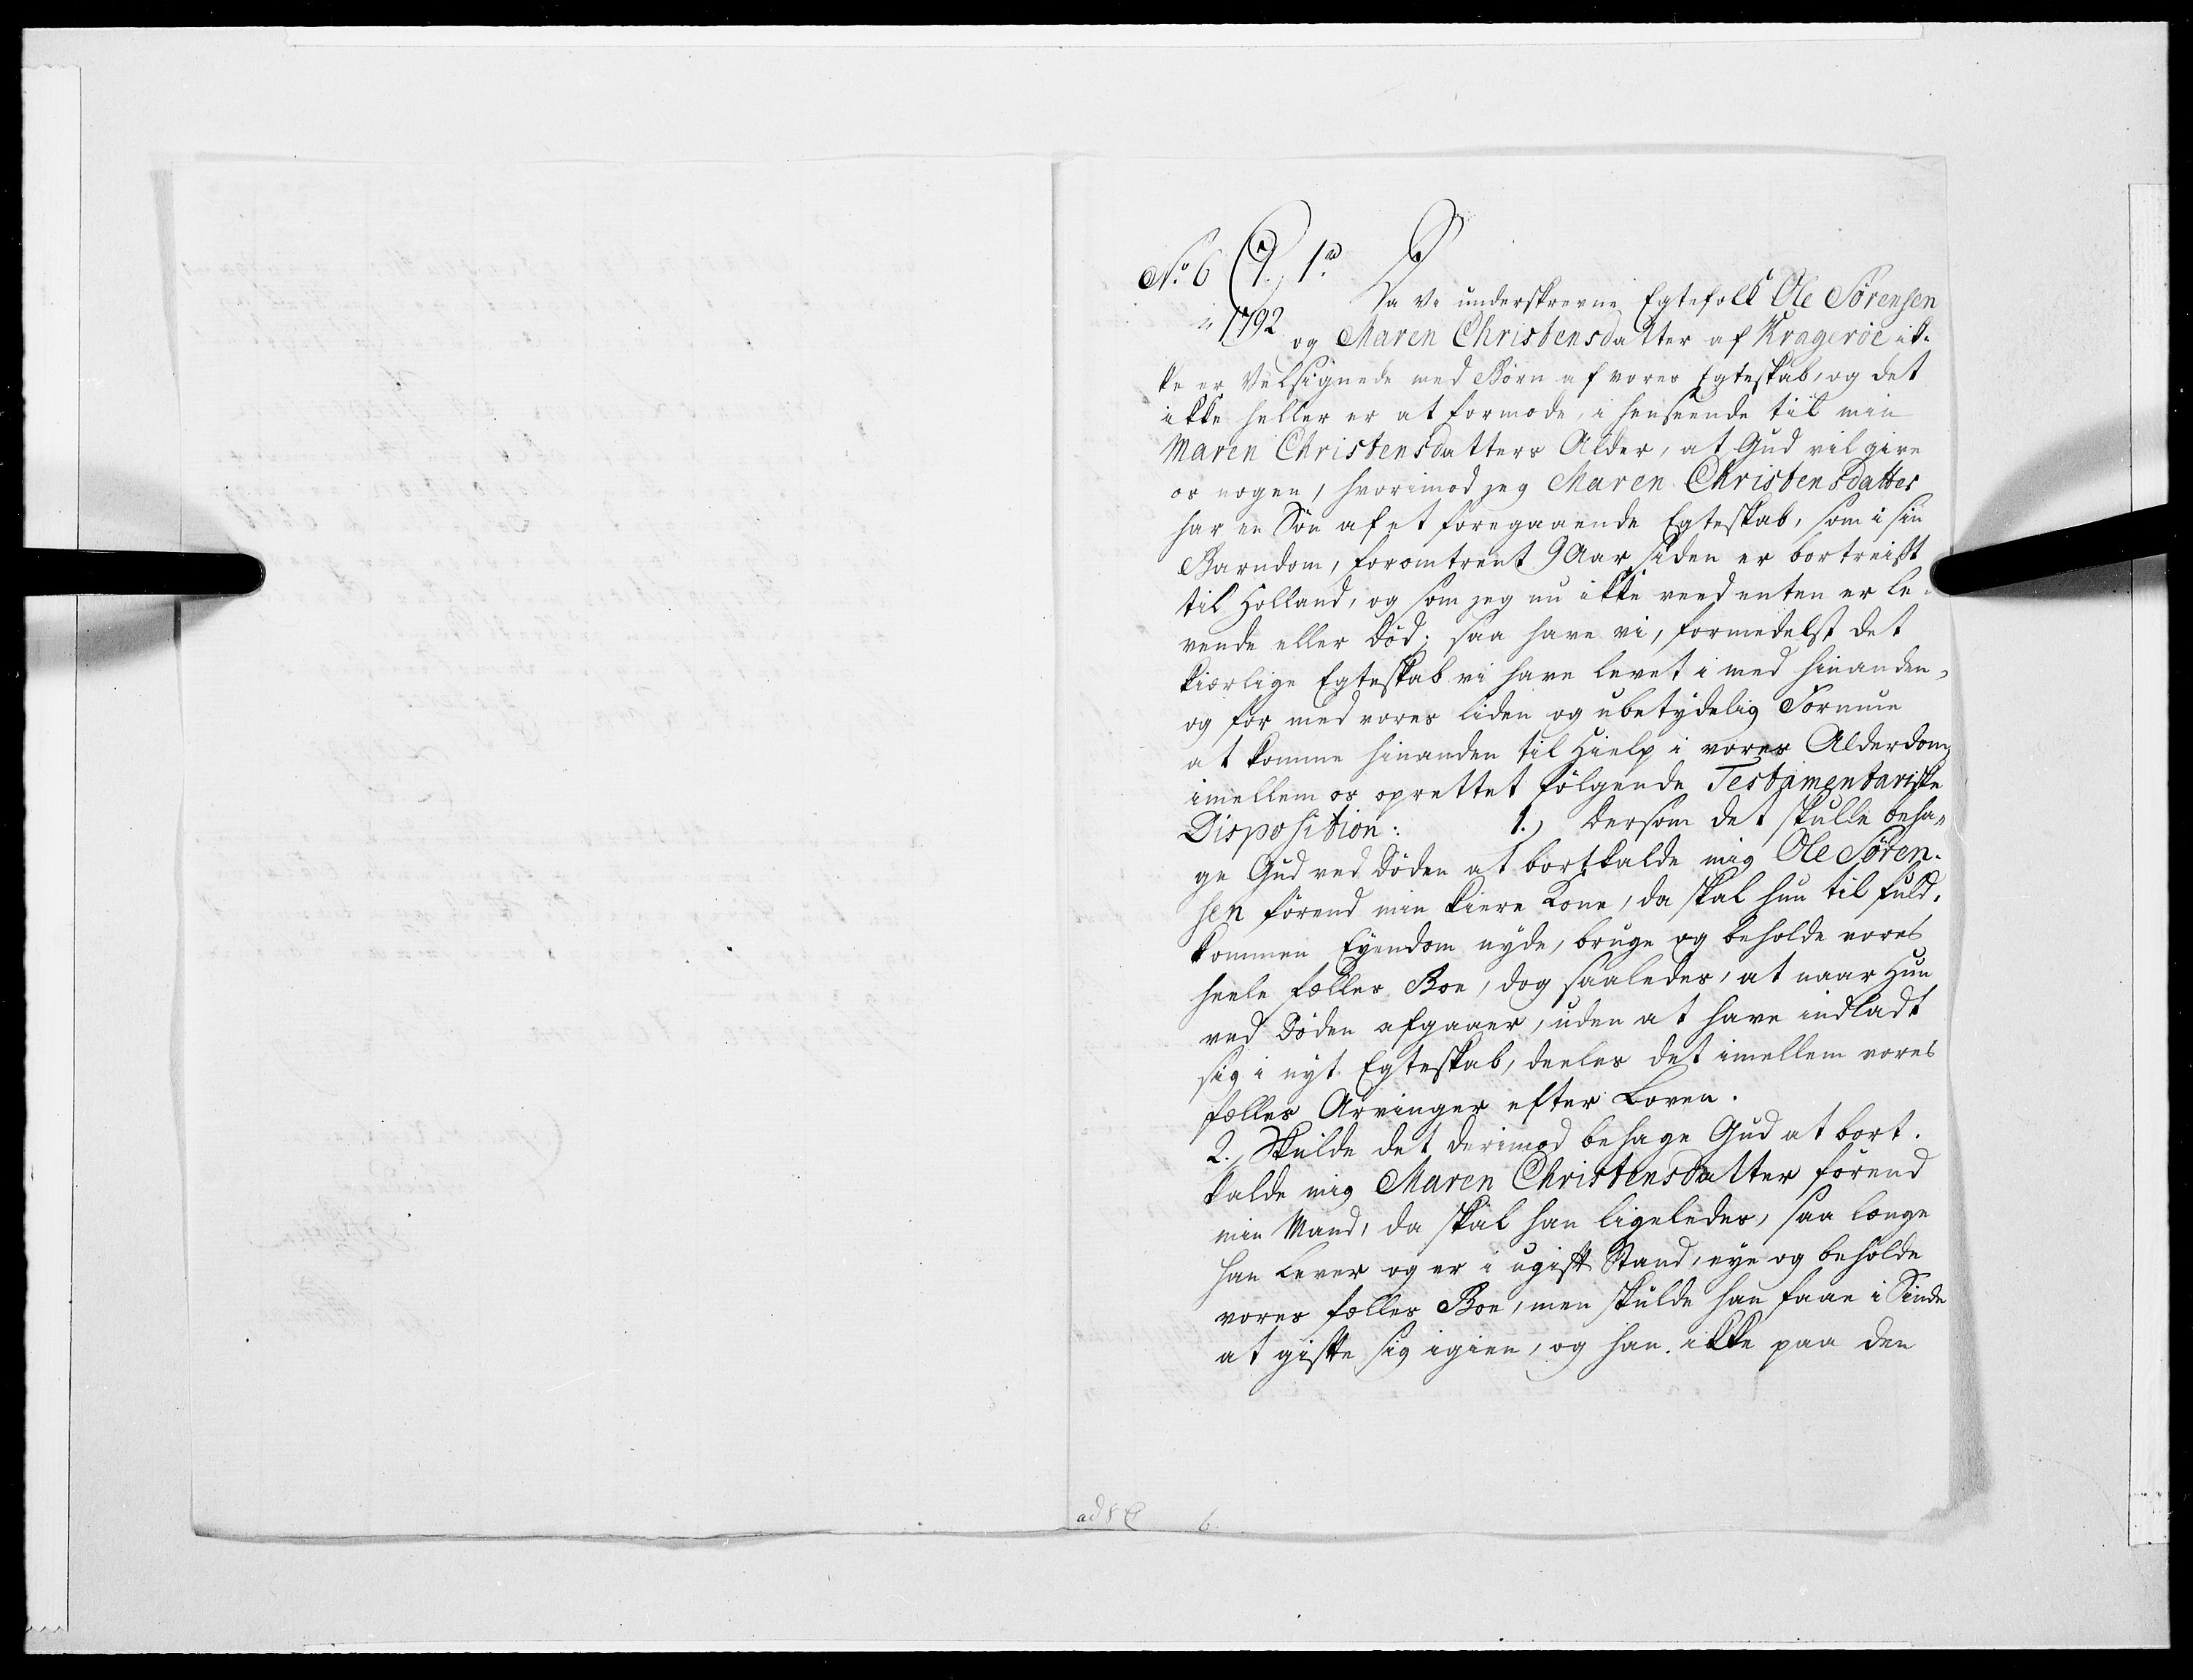 No. 6
1792
Da Vi underskrevne Egtefolk Ole Sørensen
og Maren Christensdatter af Kragerøe ik-
ke er Velsignede med Børn af vores Egteskab, og det
ikke heller er at formode, i henseende til min
Maren Christensdatters Alder, at Gud vil give
os nogen, hvorimod jeg Maren Christensdatter
har en Søn af et foregaaende Egteskab, som i sin
Barndom, for omtrent 9 Aar siden er bortreist
til Holland, og som jeg nu ikke veed enten er le-
vende eller død; saa have vi, formedelst det
kiærlige Egteskab vi have levet i med hinanden,
og for med vores liden og ubetydelig Formue
at komme hinanden til Hielp i vores Alderdom,
imellem os oprettet følgende Testamentariske
Disposition: 1.) Dersom det skulle beha-
ge Gud ved Døden at bortkalde mig Ole Søren-
sen førend min kiere Kone, da skal hun til fuld-
kommen Eyendom nyde, bruge og beholde vores
heele fælles Boe, dog saaledes, at naar Hun
ved Døden afgaaer, uden at have indladt
sig i nyt Egteskab, deeles det imellem vores
fælles Arvinger efter Loven.
2.) Skulde det derimod behage Gud at bort-
kalde mig Maren Christensdatter førend
min Mand, da skal han ligeledes, saa længe
han Lever og er i ugift Stand, eye og beholde
vores fælles Boe, men skulde han faae i Sinde
at gifte sig igien, og han ikke paa den
ad 8
6